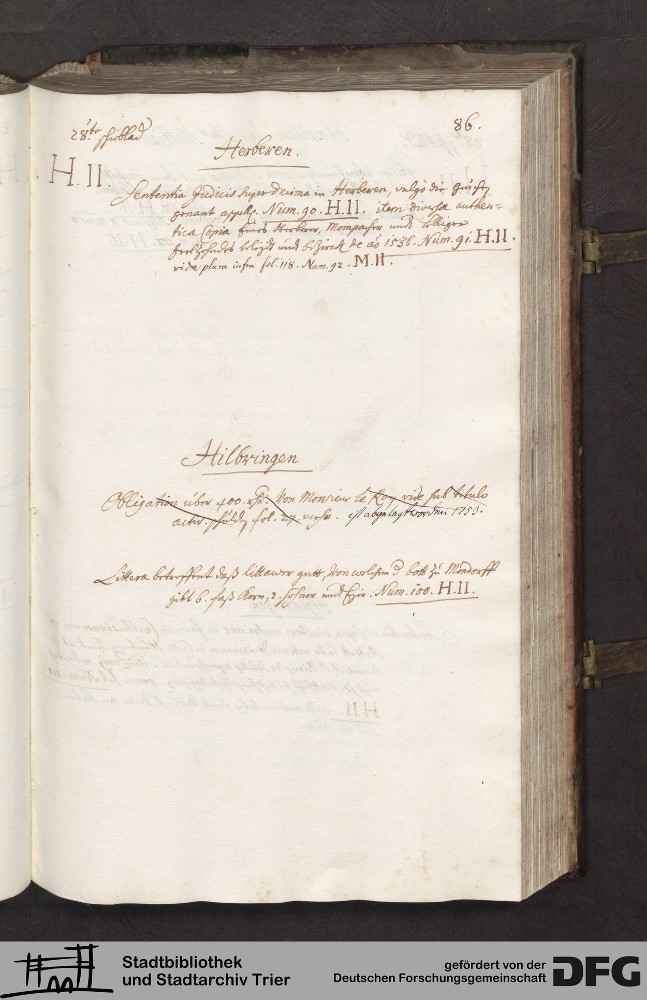 28te schiblad
86.
Herberen.
H.II.
Sententia Judicis super decima in Herberen, vulgo die
genant appell. Num. 90. H.II. item diversæ authen-
tica Copia eines Herberer, Mompacher und
belizts und bezirck de aō 1536. Num. 91. H.II.
vide plura infra fol. 118. Num. 92. M.II.
Hilbringen
Obligation über 400. rhr. von Monsieur le Roy vide sub titulo
activ. schuld fol. 27 verso. ist abgelegt worden 1753.
Littera betreffent daß littawer gutt, von welchem d bott zu Mondorff
gibt 6. faß Korn, 2. hohner und. Num. 100. H.II.
Stadtbibliothek
und Stadtarchiv Trier
gefördert von der
Deutschen Forschungsgemeinschaft
DFG